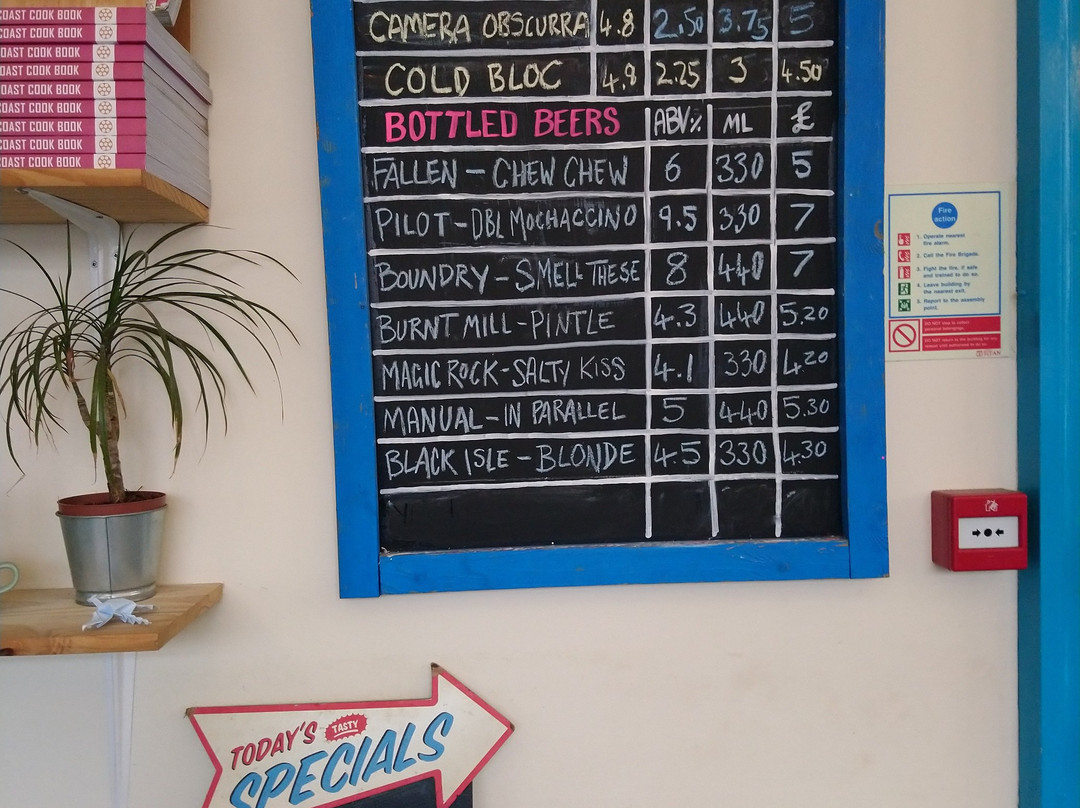 CAMERA OBSCURRA 4.8 2.50 3.75 5
COLD BLOC 4.8 2.25 3 4.50
BOTTLED BEERS ABV% ML £
FALLEN - CHEW CHEW 6 330 5
PILOT-DBL MOCHACCINO 9.5 330 7
BOUNDRY - SMELL THESE 8 440 7
BURNT MILL-PINTLE 4.3 440 5.20
MAGIC ROCK-SALTY KISS 4.1 330 4.20
MANUAL-IN PARALLEL 5 440 5.30
BLACK ISLE - BLONDE 4.5 330 4.30
COAST COOK BOOK
COAST COOK BOOK
COAST COOK BOOK
COAST COOK BOOK
COAST COOK BOOK
COAST COOK BOOK
COAST COOK BOOK
COAST COOK BOOK
COAST COOK BOOK
Fire
action
1. Operate nearest
fire alarm.
2. Call the Fire Brigade.
3. Fight the fire, if safe
and trained to do so.
4. Leave building by
the nearest exit.
5. Report to the assembly
point.
TODAY'S TASTY
SPECIALS